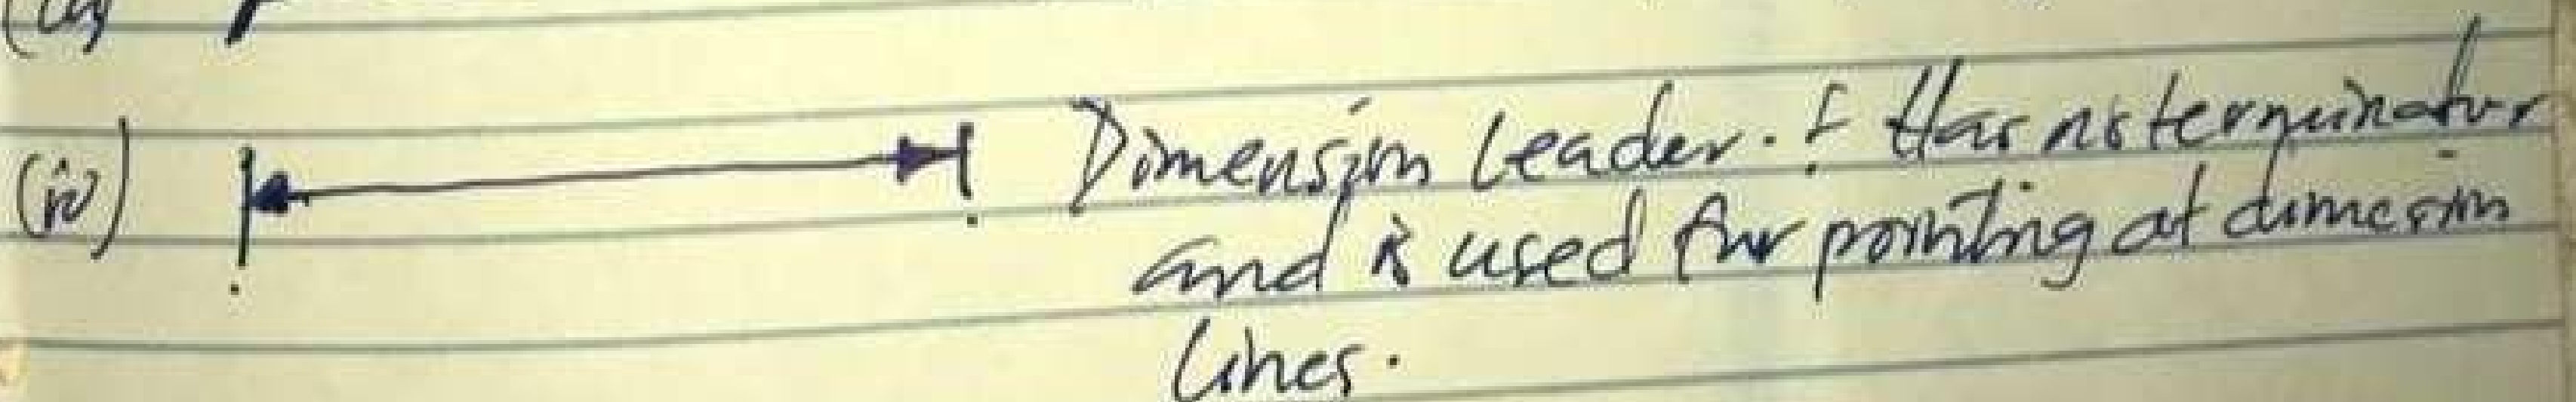 (iv) Dimension leader. : Has no terminator
and is used for pointing at dimension
lines.